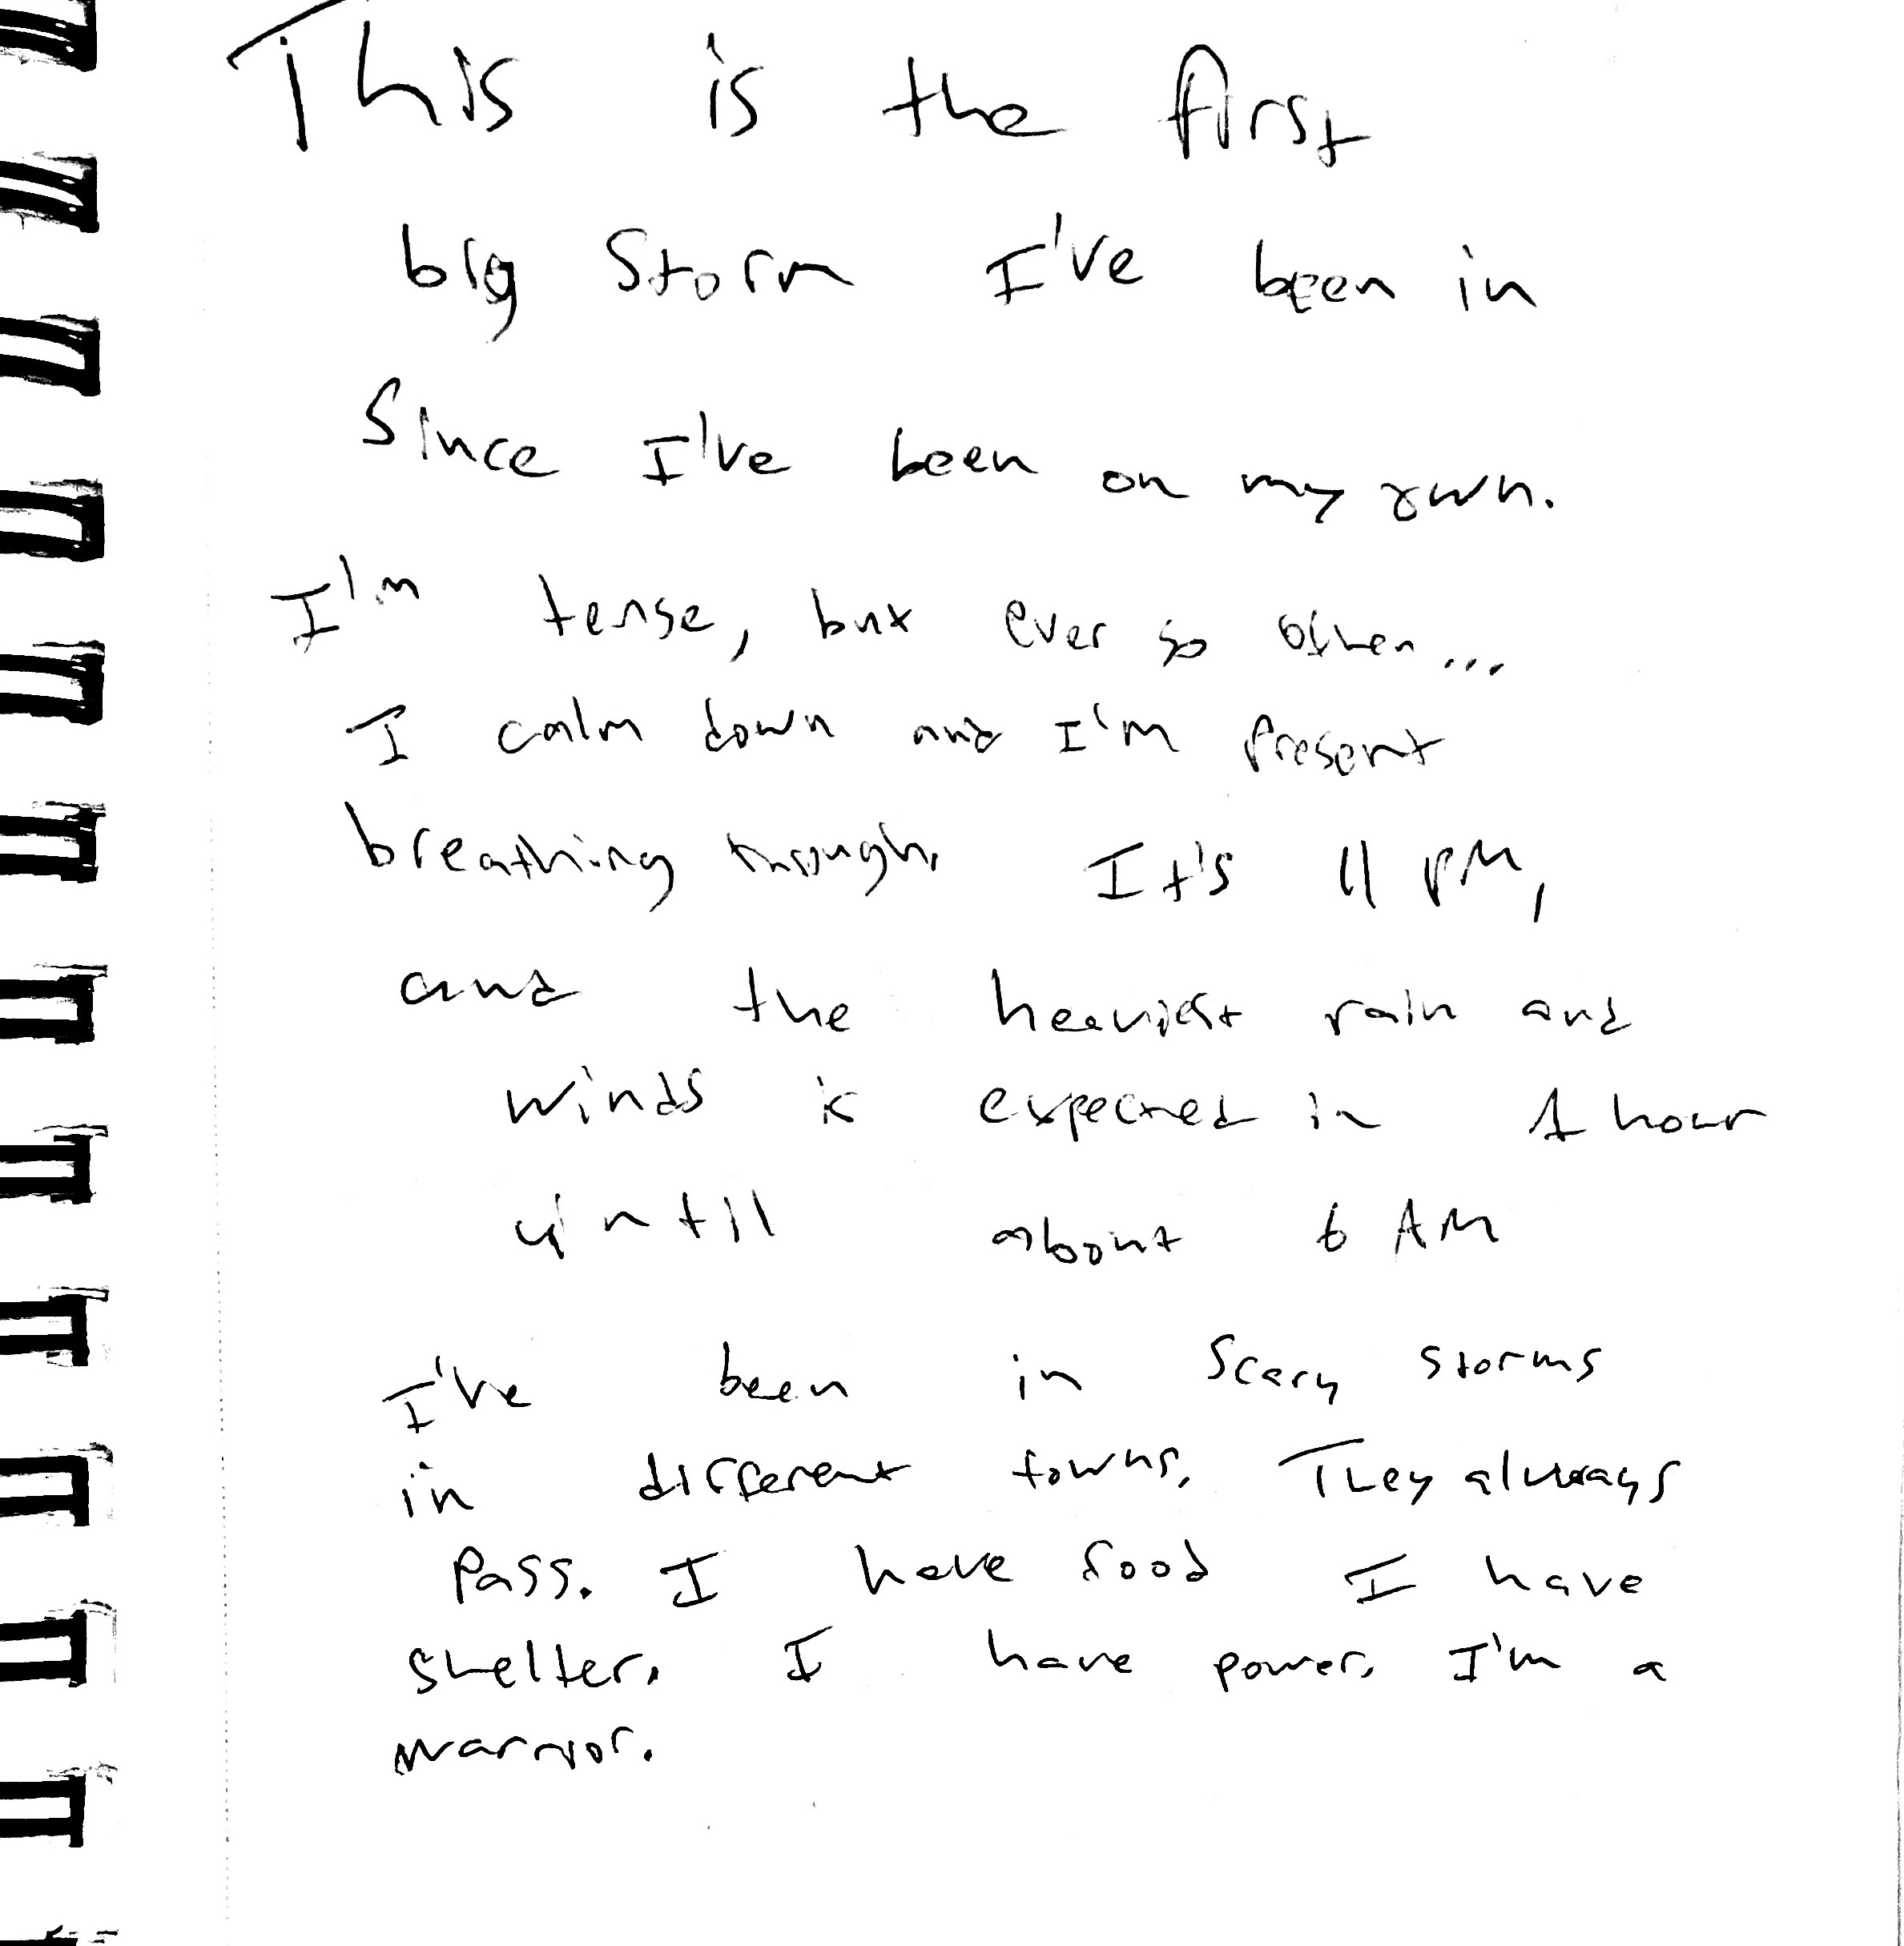 This is the first
big storm I've been in
since I've been on my own.
I'm tense, but ever so often...
I calm down and I'm present
breathing through. It's 11 PM,
and the heaviest rain and
winds is expected in 1 hour
until about 6 AM
I've been in scary storms
in different towns. They always
pass. I have food I have
shelter. I have power. I'm a
warrior.